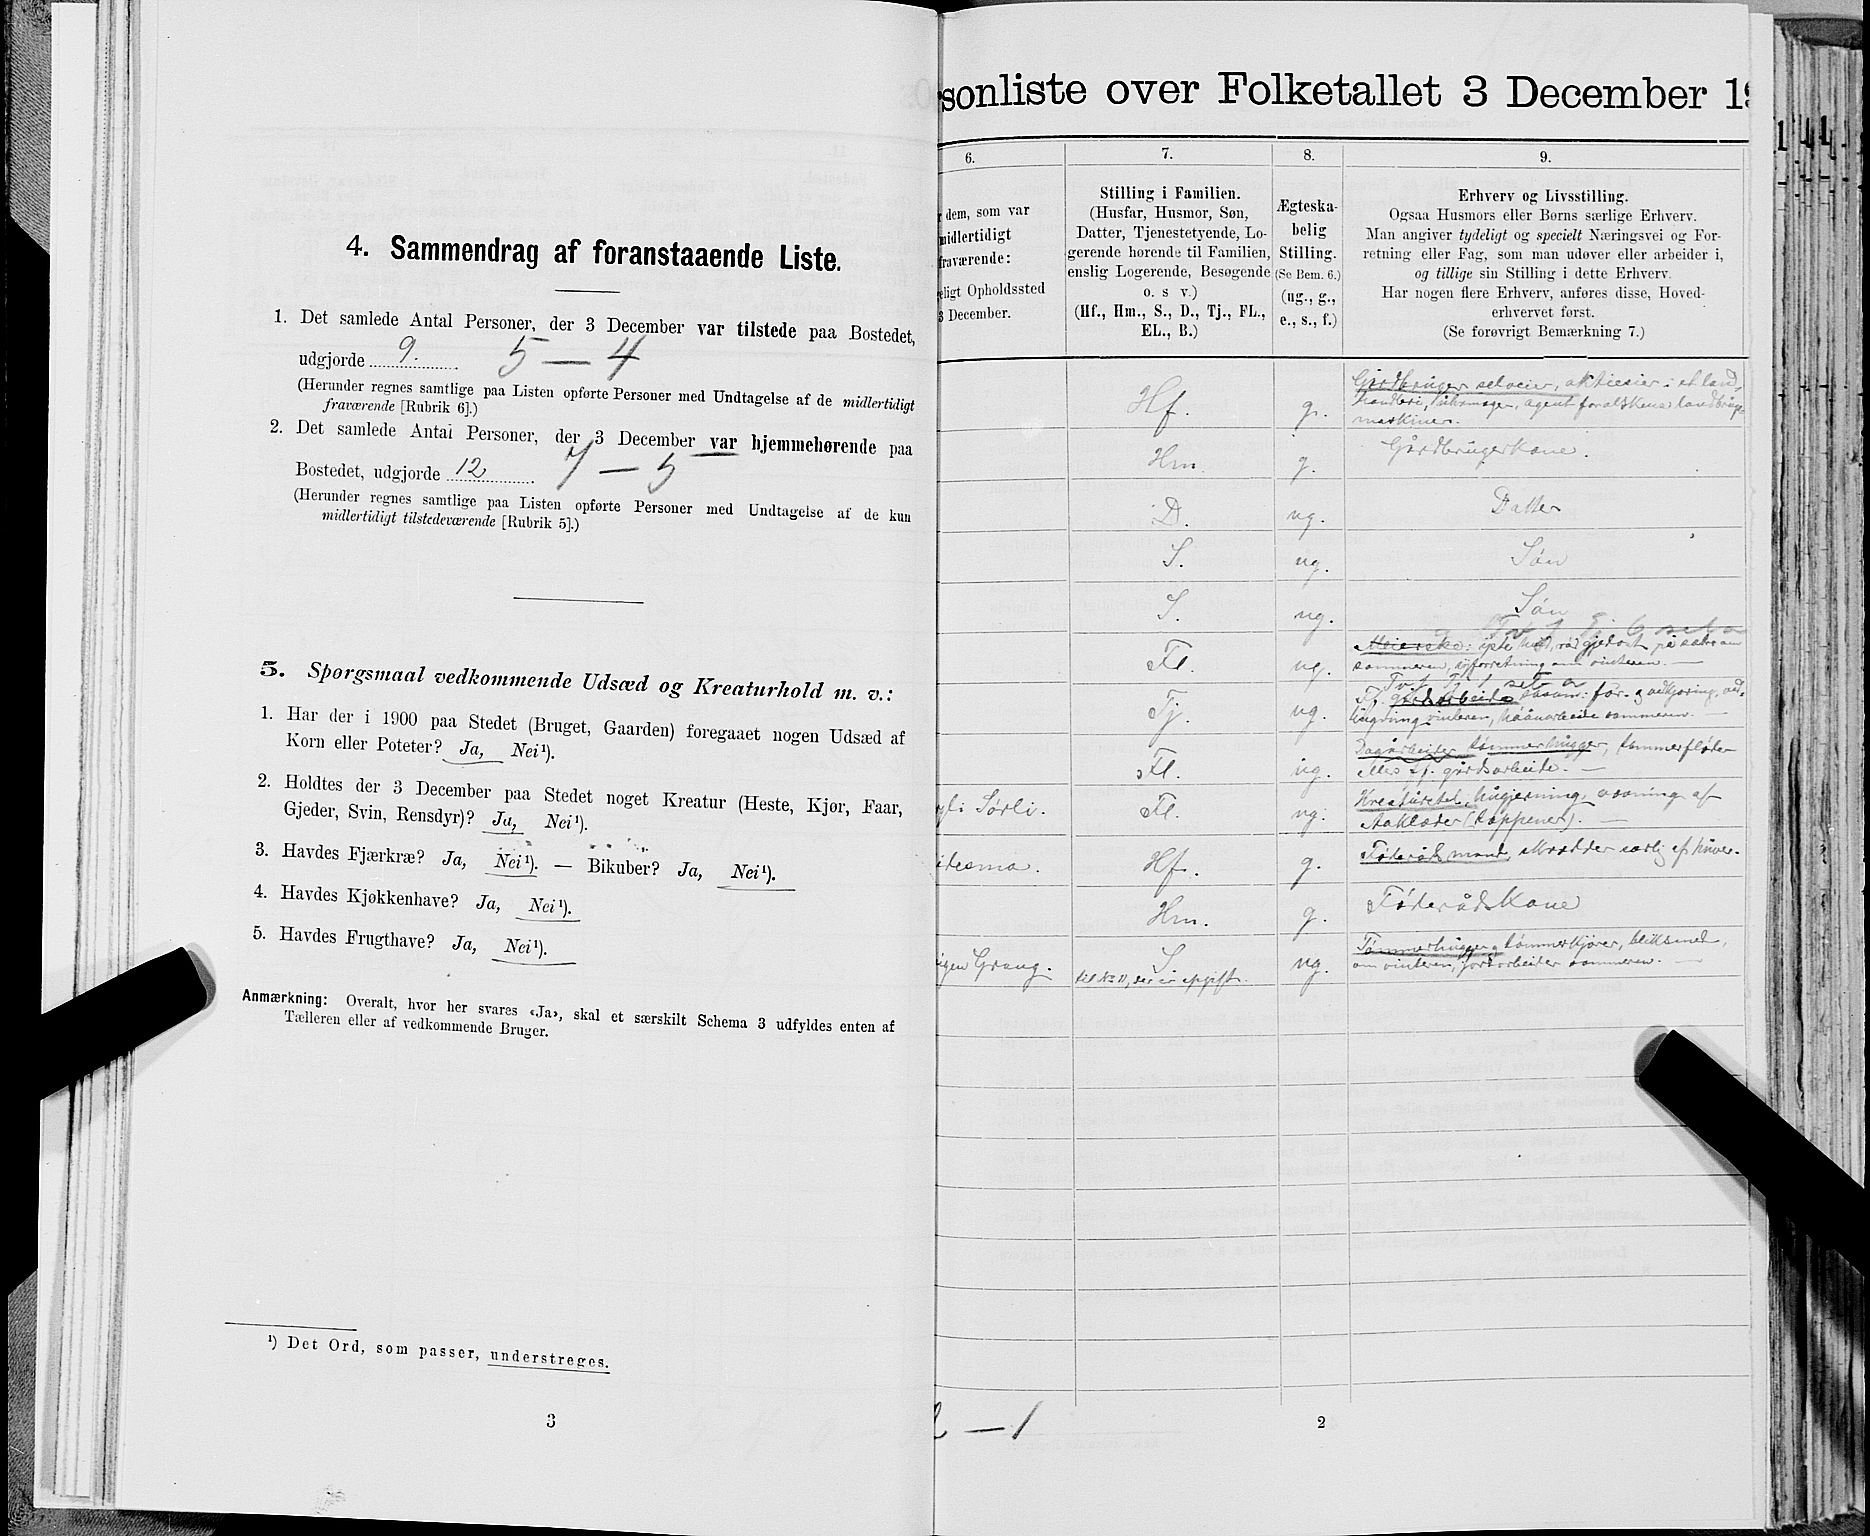 4. Sammendrag af foranstaaende Liste.
1. Det samlede Antal Personer, der 3 December var tilstede paa Bostedet,
udgjorde 9. 5 — 4
(Herunder regnes samtlige paa Listen opførte Personer med Undtagelse af de midlertidigt
fraværende [Rubrik 6].)
2. Det samlede Antal Personer, der 3 December var hjemmehørende paa
Bostedet, udgjorde 12 7 — 5
(Herunder regnes samtlige paa Listen opførte Personer med Undtagelse af de kun
midlertidigt tilstedeværende [Rubrik 5].)
5. Spørgsmaal vedkommende Udsæd og Kreaturhold m. v.:
1. Har der i 1900 paa Stedet (Bruget, Gaarden) foregaaet nogen Udsæd af
Korn eller Poteter? Ja, Nei¹).
2. Holdtes der 3 December paa Stedet noget Kreatur (Heste, Kjør, Faar,
Gjeder, Svin, Rensdyr)? Ja, Nei¹).
3. Havdes Fjærkræ? Ja, Nei¹). — Bikuber? Ja, Nei¹).
4. Havdes Kjøkkenhave? Ja, Nei¹).
5. Havdes Frugthave? Ja, Nei¹).
Anmærkning: Overalt, hvor her svares «Ja», skal et særskilt Schema 3 udfyldes enten af
Tælleren eller af vedkommende Bruger.
¹) Det Ord, som passer, understreges.
3
sonliste over Folketallet 3 December 19
6.
dem, som var
midlertidigt
fraværende:
ligt Opholdssted
3 December.
7.
Stilling i Familien.
(Husfar, Husmor, Søn,
Datter, Tjenestetyende, Lo-
gerende hørende til Familien,
enslig Logerende, Besøgende
o. s v.)
(Hf., Hm., S., D., Tj., FL.,
EL., B.)
8.
Ægteska-
belig
Stilling.
(Se Bem. 6.)
(ug., g.,
e., s., f.)
9.
Erhverv og Livsstilling.
Ogsaa Husmors eller Børns særlige Erhverv.
Man angiver tydeligt og specielt Næringsvei og For-
retning eller Fag, som man udøver eller arbeider i,
og tillige sin Stilling i dette Erhverv.
Har nogen flere Erhverv, anføres disse, Hoved-
erhvervet først.
(Se forøvrigt Bemærkning 7.)
Hf. g. Gårdbruger selveier, aktieeier i et land-
handleri, agent for alskens landbrugs-
maskiner.
Hm. g. Gårdbrugerkone.
D. ug. Datter
S. ug. Søn
S. ug. Søn
Fl. ug. Meierske: gjedost på sæter om
sommeren, om vinteren. —
Tj. ug. Tj. gårdsarbeide såsom: for- og vedkjøring, ved-
hugning vinteren, sommeren. —
Fl. ug. Dagarbeider tømmerhugger, tømmerfløder
elles gårdsarbeide. —
Sørli. Fl. ug. Kreaturstel, husgjerning, vævning af
Aaklæder (tæppener). —
Hf. g. Føderådsmand, skrædder
Hm. g. Føderådskone
Grong. S. ug. Tømmerhugger, tømmerkjører, bliksmed,
om vinteren, jordarbeider sommeren. —
— 1
2